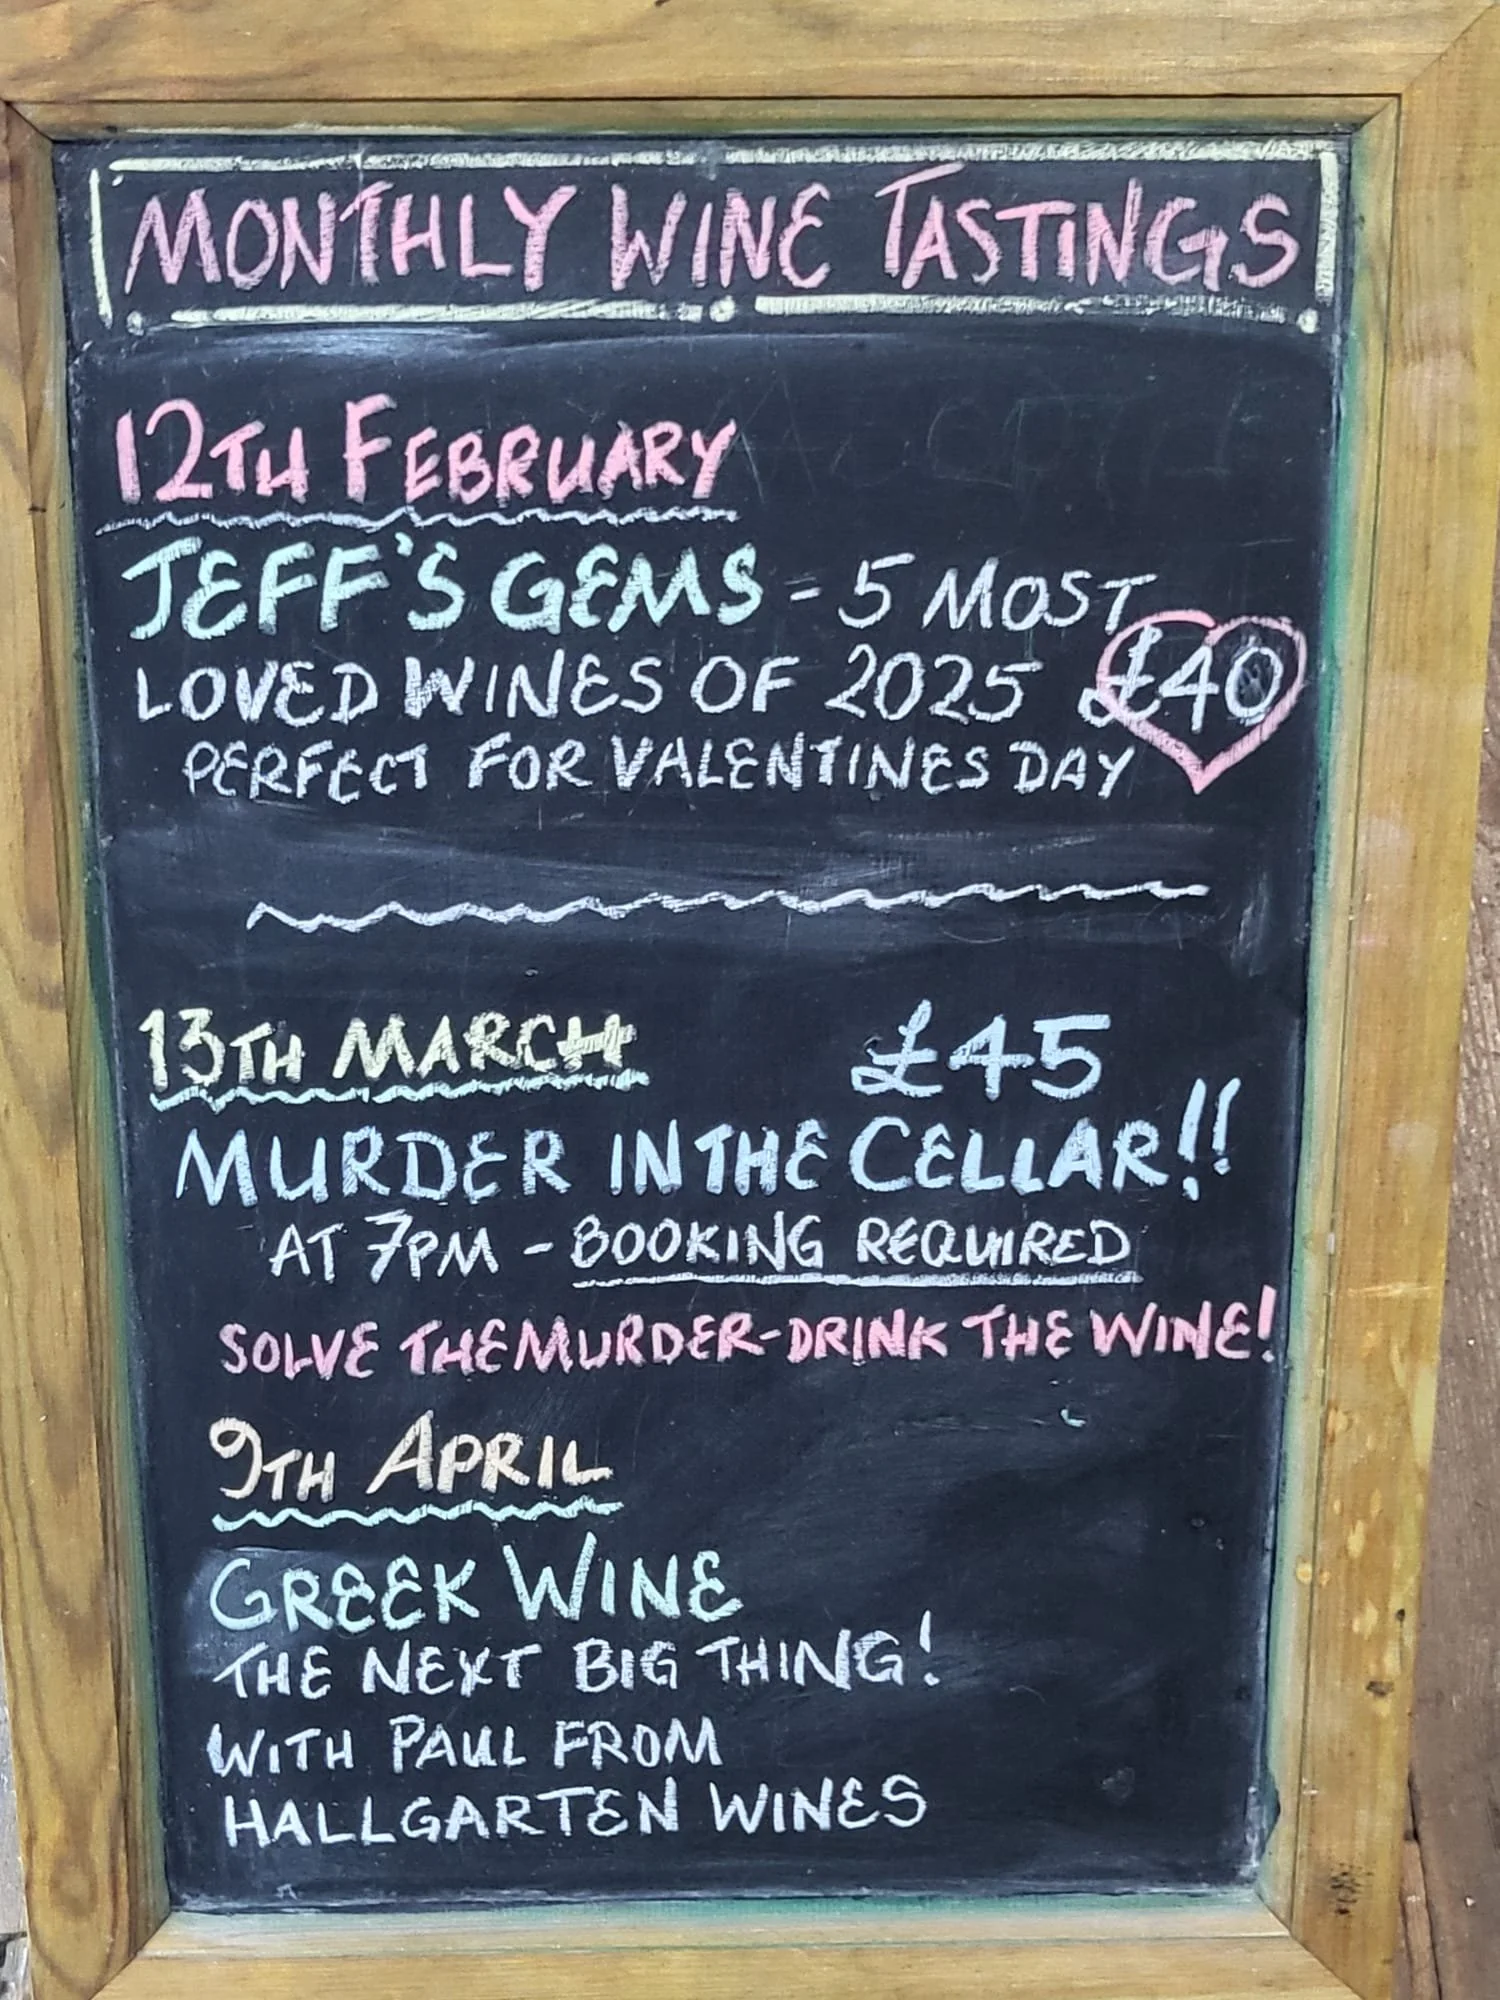 MONTHLY WINE TASTINGS
12TH FEBRUARY
JEFF'S GEMS - 5 MOST
LOVED WINES OF 2025 £40
PERFECT FOR VALENTINES DAY
13TH MARCH £45
MURDER IN THE CELLAR!!
AT 7PM - BOOKING REQUIRED
SOLVE THE MURDER-DRINK THE WINE!
9TH APRIL
GREEK WINE
THE NEXT BIG THING!
WITH PAUL FROM
HALLGARTEN WINES